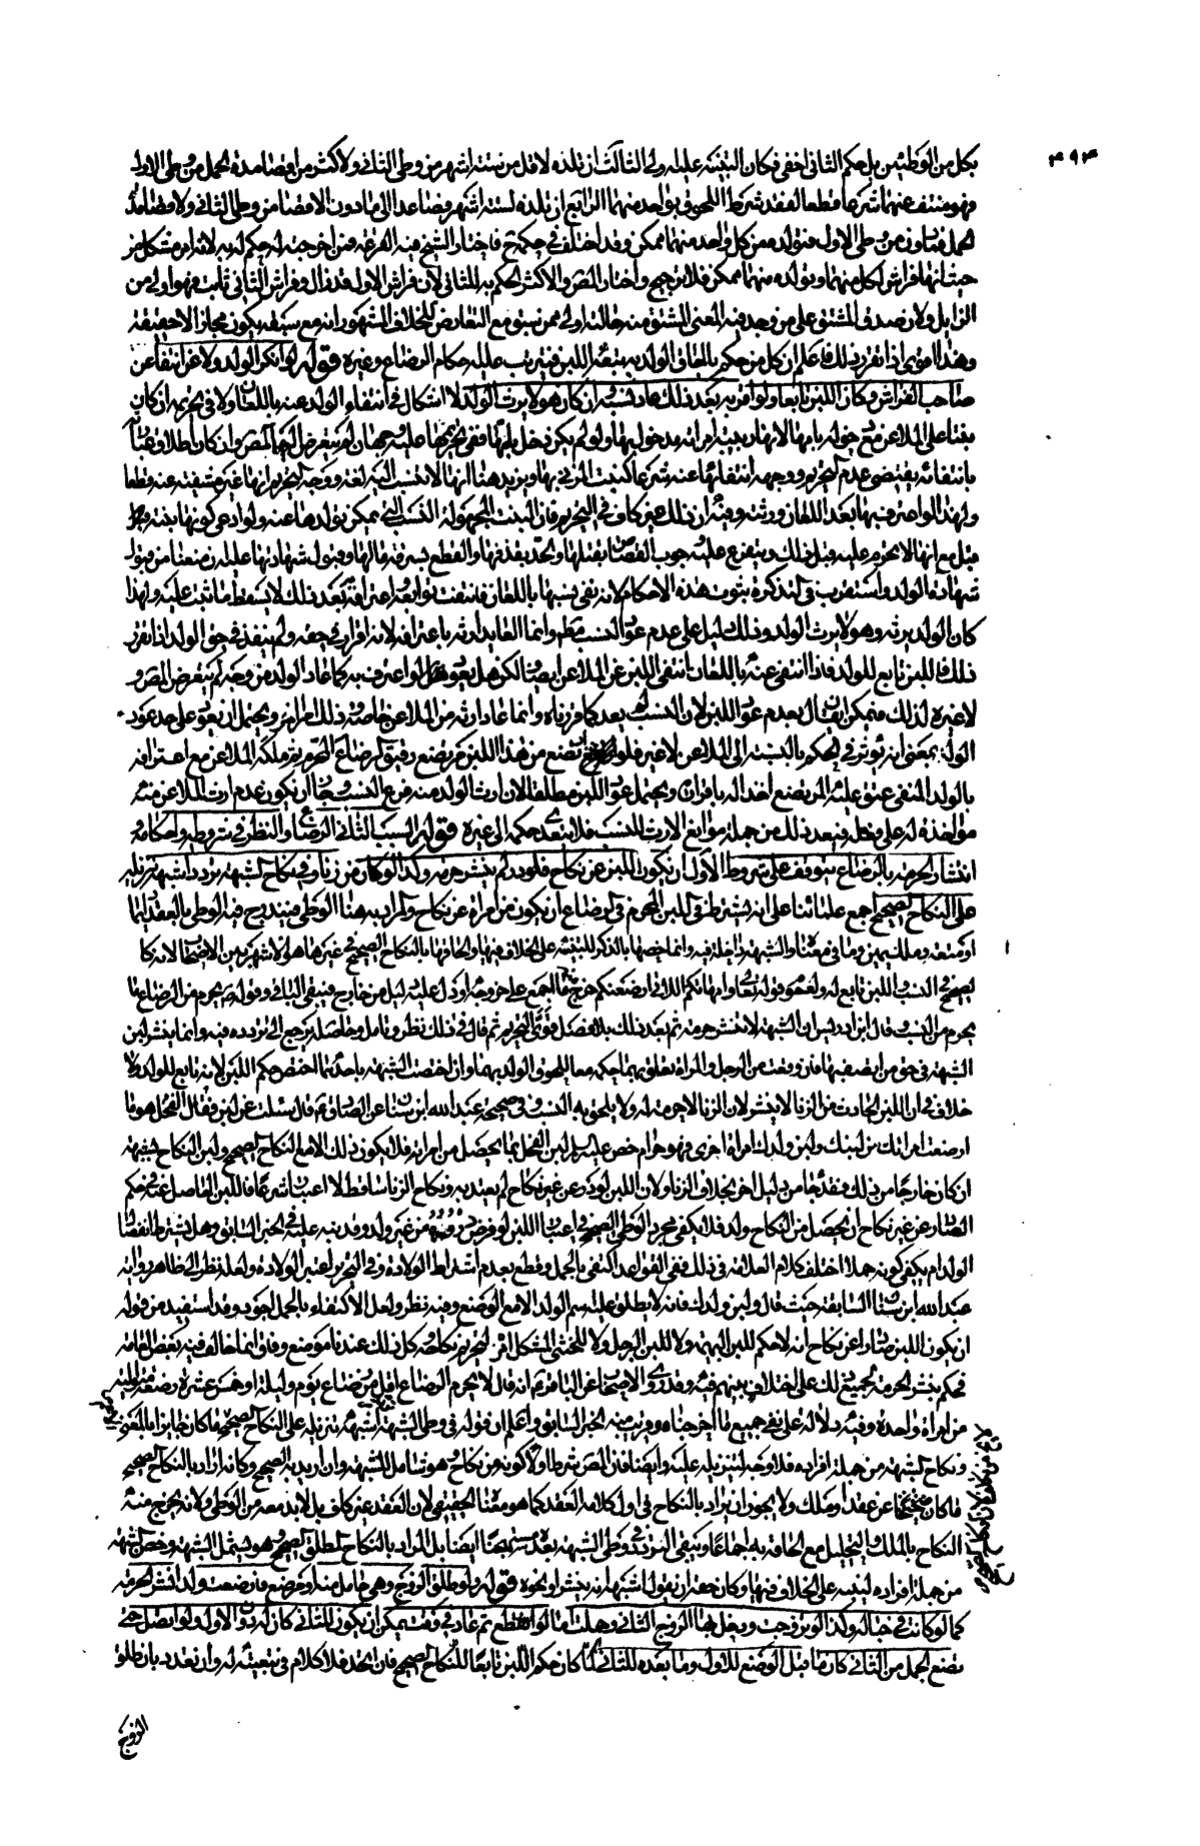 ٣٩٣
بكل من الوطئين بل حكم الثاني اخفى فكان التنبيه عليه اولى الثالث ان تلده لاقل من ستة اشهر من وطى الثاني ولاكثر من اقصى مدة الحمل من وطى الاول
فهو منتف عنهما شرعا قطعا لفقد شرط اللحوق بواحد منهما الرابع ان تلده لستة اشهر فصاعدا الى ما دون الاقصى من وطى الثاني ولاقصى مدة
الحمل فما دون من وطى الاول فتولده من كل واحد منهما ممكن وقد اختلف في حكمه فاختار الشيخ فيه القرعة فمن اخرجته له حكم له به لانه امر مشكل من
حيث انها فراش لكل منهما وتولده منهما ممكن فلا ترجيح واختار المص والاكثر الحكم به للثاني لان فراش الاول قد زال وفراش الثاني ثابت فهو اولى من
الزايل ولان صدق المشتق على من وجد فيه المعنى المشتق منه حالته اولى ممن سبق مع التعارض للخلاف المشهور انه مع سبقه يكون مجازا لا حقيقة
وهذا اقوى اذا تقرر ذلك فاعلم ان كل من حكم بالحاق الولد به يتبعه اللبن فيترتب عليه احكام الرضاع وغيره قوله لو انكر الولد ولاعن انتفى عن
صاحب الفراش وكان اللبن تابعا ولو اقر به بعد ذلك عاد نسبه وان كان هو لا يرث الولد لا اشكال في انتفاء الولد عنه باللعان ولا في تحريمه ان كان
بنتا على الملاعن مع دخوله بامها لانها ربيبة امرأته مدخول بها ولو لم يكن دخل بامها ففي تحريمها عليه وجهان لم يتعرض اليها المص وان كان اطلاق عبارته
بانتفائه يقتضي عدم التحريم ووجهه انتفائها عنه شرعا كبنت المزني بها ويزيد هنا انها لا تنتسب اليه لغة ووجه التحريم انها غير منفية عنه قطعا
ولهذا لو اعترف بها بعد اللعان ورثته وفيه ان ذلك غير كاف في التحريم فان البنت المجهولة النسب التي يمكن تولدها عنه ولو ادعى كونها بنته
قبل مع انها لا تحرم عليه قبل ذلك ويتفرع عليه وجوب القصاص بقتلها والحد بقذفها والقطع بسرقة مالها وقبول شهادتها عليه ان منعنا من قبول
شهادة الولد واستقرب في التذكرة ثبوت هذه الاحكام لانه نفى نسبها باللعان فتنتفي توابعه اعترافه بعد ذلك لا يسقط ما ثبت عليه ولهذا
كان الولد يرثه وهو لا يرث الولد وذلك دليل على عدم عود النسب مطم وانما الفايدة ارثه باعترافه لانه اقرار في حقه ولم ينفذ في حق الولد اذا تقرر
ذلك فاللبن تابع للولد فاذا انتفى عنه باللعان انتفى اللبن عن الملاعن ايضا لكن هل يعود لو اعترف به كما عاد الولد من وجه لم يتعرض المص و
لا غيره لذلك فيمكن ان يقال بعدم عود اللبن لان النسب لم يعد كما قررناه وانما عاد ارثه من الملاعن خاصة وذلك امر اخر ويحتمل ان يعود على حد عود
الولد بمعنى انه يؤثر في الحكم بالنسبة الى الملاعن لا غير فلو ارتضع من هذا اللبن مرتضع رقيق الرضاع المحرم ثم ملكه الملاعن مع اعترافه
بالولد المنفي عتق عليه المرتضع اخذا له باقراره ويحتمل عود اللبن مطلقا لان ارث الولد منه فرع النسب وجاز ان يكون عدم ارث الملاعن منه
مؤاخذة له على فعله فيعد ذلك من جملة موانع الارث للنسب فلا يتعدى حكمه الى غيره قوله السبب الثاني الرضاع والنظر في شروطه واحكامه
انتشار الحرمة بالرضاع يتوقف على شروط الاول ان يكون اللبن عن نكاح فلو در لم ينشر حرمة وكذا لو كان من زنا وفي نكاح الشبهة تردد اشبهه تنزيله
على النكاح الصحيح اجمع علمائنا على انه يشترط في اللبن المحرم في الرضاع ان يكون من امرأة عن نكاح والمراد به هنا الوطى فيندرج فيه الوطى بالعقد دائما
او متعة وملك يمين وما في معناه والشبهة داخلة فيه وانما خصها بالذكر للتنبيه على الخلاف فيها والحاقها بالنكاح الصحيح في غيرها هو الاشهر بين الاصحاب لانه كا
لصحيح في النسب واللبن تابع له ولعموم قوله تعالى وامهاتكم اللاتي ارضعنكم خرج ما اجمع على خروجه او دل عليه دليل من خارج فيبقى الباقي وقوله ص يحرم من الرضاع ما
يحرم من النسب وقال ابن ادريس ان الشبهة لا تنشر حرمة ثم بعد ذلك بلا فصل قوى التحريم ثم قال في ذلك نظر وتامل وحاصله يرجع الى تردده فيه وانما ينشر لبن
الشبهة في حق من يتصف بها فان وقعت من الرجل والمرأة تعلق بهما حكمه معا للحوق الولد بهما وان اختصت الشبهة باحدهما اختص حكم اللبن لانه تابع للولد ولا
خلاف في ان اللبن الحادث من الزنا لا ينشر لان الزنا لا حرمة له ولا يلحق به النسب وفي صحيحة عبد الله ابن سنان عن الصادق ع قال سئلت عن لبن الفحل فقال هو ما
ارضعت امرأتك من لبنك ولبن ولدك امرأة اخرى فهو حرام خص عليه السلم لبن الفحل بما يحصل من امرأته فلا يكون ذلك الا مع النكاح الصحيح ولبن النكاح لشبهة
ان كان خارجا من ذلك فقد جاء من دليل اخر بخلاف الزنا ولان اللبن لو در عن غير نكاح لم يعتد به ونكاح الزنا ساقط الاعتبار شرعا فاللبن الحاصل عنه في حكم
الصادر عن غير نكاح انما يحصل من النكاح ولد فلا يكفي مجرد الوطى الصحيح في اعتبار اللبن لو فرض دره من غير ولد وقد نبه عليه في الخبر السابق وهل يشترط انفصال
الولد ام يكفي كونه حملا اختلف كلام العلامة في ذلك ففي القواعد اكتفى بالحمل وقطع بعدم اشتراط الولادة وفي التحرير اعتبر الولادة ولعله نظر الى ظاهر رواية
عبد الله ابن سنان السابقة حيث قال ولبن ولدك فانه لا يطلق عليه اسم الولد الا مع الوضع وفيه نظر ولعل الاكتفاء بالحمل اجود وقد استفيد من قوله
ان يكون اللبن صادرا عن نكاح انه لا حكم للبن البهيمة ولا للبن الرجل ولا للخنثى المشكل امره لتحريم نكاحه كل ذلك عندنا موضع وفاق وانما خالف فيه بعض العامة
فحكم بنشر الحرمة بجميع ذلك على اختلاف بينهم فيه وقد روى الاصحاب عن الباقر ع انه قال لا يحرم الرضاع اقل من رضاع يوم وليلة او خمس عشرة رضعة متوالية
من امرأة واحدة وفيه دلالة على نفي جميع ما اخرجناه ويريد منه الخبر السابق واعلم ان قوله في وطى الشبهة اشبهه تنزيله على النكاح الصحيح
ونكاح الشبهة من جملة افراده فلا وجه لتنزيله عليه وايضا فان المص شرط اولا كونه من نكاح وهو شامل للشبهة وان اريد به الصحيح وكانه اراد بالنكاح الصحيح
ما كان صحيحا عن عقد او ملك ولا يجوز ان يراد بالنكاح في اول كلامه العقد كما هو معناه الحقيقي لان العقد غير كاف بل لابد معه من الوطى ولانه يخرج منه
النكاح بالملك والتحليل مع الحاقه به اجماعا ويبقى التردد في وطى الشبهة بعده مستهجنا ايضا بل المراد بالنكاح المطلق الصحيح وهو يشمل الشبهة وخص الشبهة
من جملة افراده لينبه على الخلاف فيها وكان حقه ان يقول اشبهه انه ينشر او نحوه قوله ولو طلق الزوج وهي حامل منه او مرضع فارضعت ولدا نشر الحرمة
كما لو كانت في حباله وكذا لو تزوجت ودخل بها الزوج الثاني وحملت اما لو انقطع ثم عاد في وقت يمكن ان يكون للثاني كان له دون الاول ولو اتصل حتى
تضع الحمل من الثاني كان ما قبل الوضع للاول وما بعده للثاني لما كان حكم اللبن تابعا للنكاح الصحيح فان اتحد فلا كلام في تبعيته له وان تعدد بان طلق
الزوج